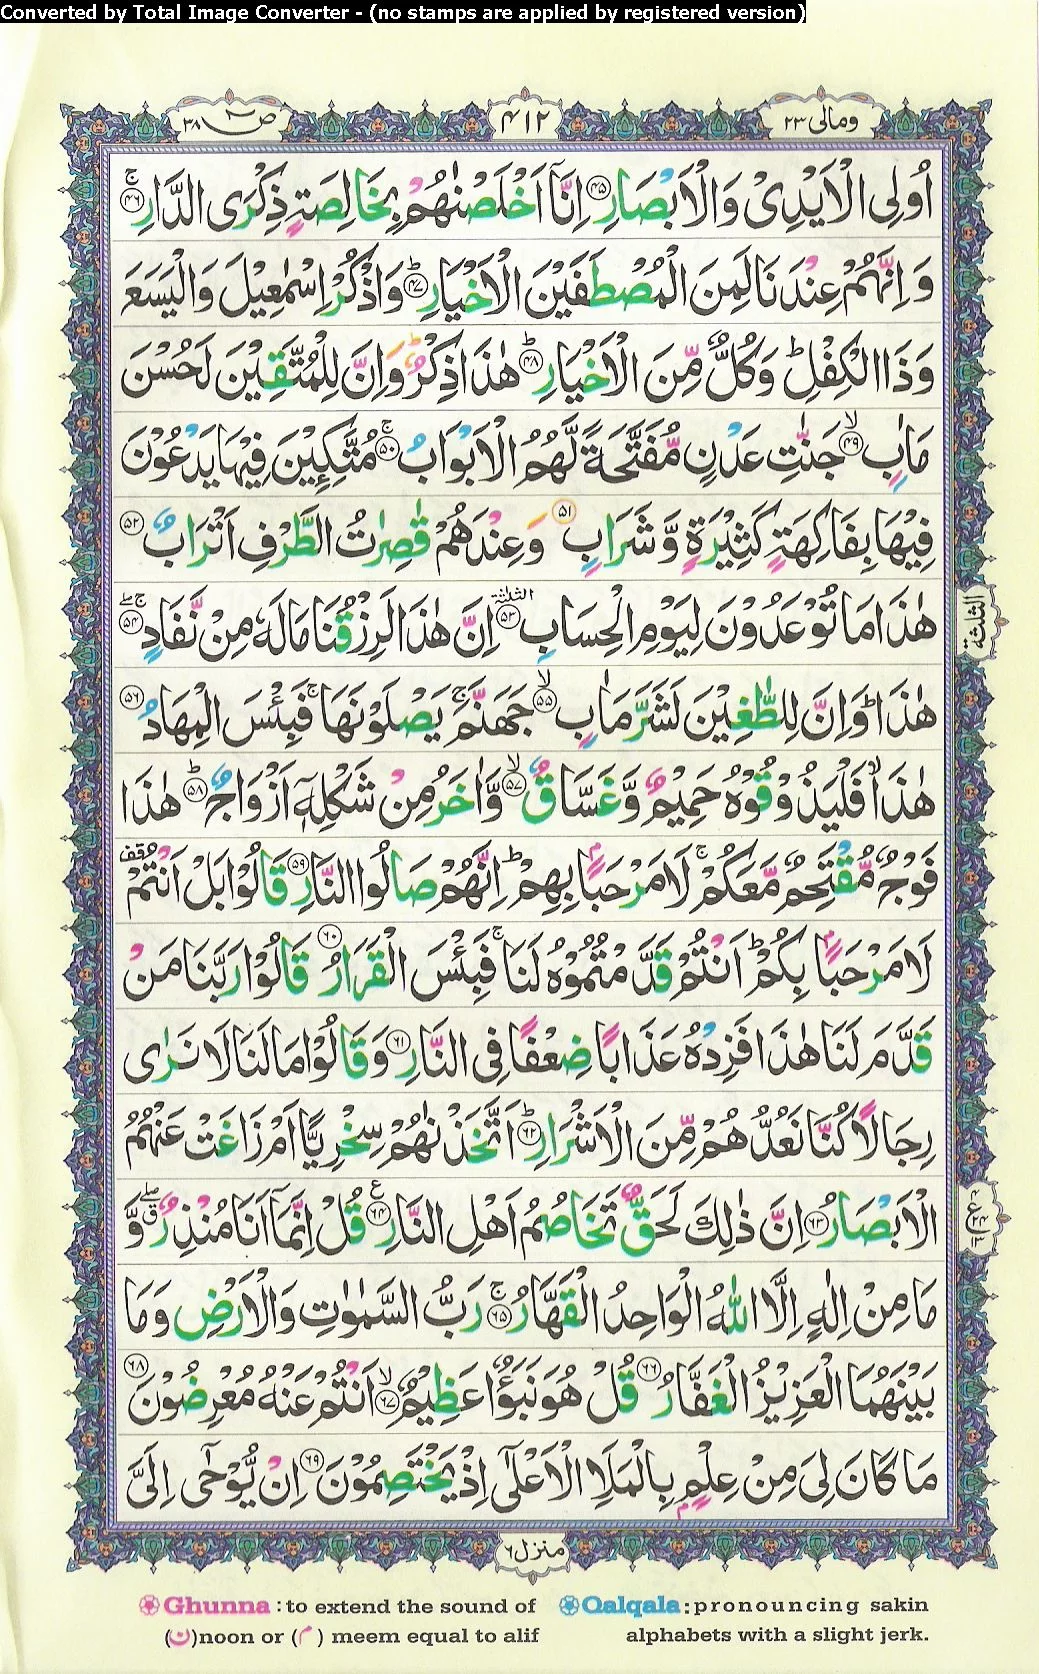 Converted by Total Image Converter - (no stamps are applied by registered version)
ومالی ٢٣
٤١٢
ص ٣٨
اُولِی الْاَیْدِیْ وَ الْاَبْصَارِ ﴿۴۵﴾ اِنَّاۤ اَخْلَصْنٰهُمْ بِخَالِصَةٍ ذِكْرَی الدَّارِ ۚ﴿۴۶﴾
وَ اِنَّهُمْ عِنْدَنَا لَمِنَ الْمُصْطَفَیْنَ الْاَخْیَارِ ؕ﴿۴۷﴾ وَ اذْكُرْ اِسْمٰعِیْلَ وَ الْیَسَعَ
وَ ذَا الْكِفْلِ ؕ وَ كُلٌّ مِّنَ الْاَخْیَارِ ؕ﴿۴۸﴾ هٰذَا ذِكْرٌ ؕ وَ اِنَّ لِلْمُتَّقِیْنَ لَحُسْنَ
مَاٰبٍ ۙ﴿۴۹﴾ جَنّٰتِ عَدْنٍ مُّفَتَّحَةً لَّهُمُ الْاَبْوَابُ ۚ﴿۵۰﴾ مُتَّكِـِٕیْنَ فِیْهَا یَدْعُوْنَ
فِیْهَا بِفَاكِهَةٍ كَثِیْرَةٍ وَّ شَرَابٍ ﴿۵۱﴾ وَ عِنْدَهُمْ قٰصِرٰتُ الطَّرْفِ اَتْرَابٌ ﴿۵۲﴾
هٰذَا مَا تُوْعَدُوْنَ لِیَوْمِ الْحِسَابِ ﴿۵۳﴾ الثلثة اِنَّ هٰذَا لَرِزْقُنَا مَا لَهٗ مِنْ نَّفَادٍ ۚۖ﴿۵۴﴾
الثلثة
هٰذَا ؕ وَ اِنَّ لِلطّٰغِیْنَ لَشَرَّ مَاٰبٍ ۙ﴿۵۵﴾ جَهَنَّمَ ۚ یَصْلَوْنَهَا ۚ فَبِئْسَ الْمِهَادُ ﴿۵۶﴾
هٰذَا ۙ فَلْیَذُوْقُوْهُ حَمِیْمٌ وَّ غَسَّاقٌ ۙ﴿۵۷﴾ وَّ اٰخَرُ مِنْ شَكْلِهٖۤ اَزْوَاجٌ ؕ﴿۵۸﴾ هٰذَا
فَوْجٌ مُّقْتَحِمٌ مَّعَكُمْ ۚ لَا مَرْحَبًۢا بِهِمْ ؕ اِنَّهُمْ صَالُوا النَّارِ ﴿۵۹﴾ قَالُوْا بَلْ اَنْتُمْ وقف
لَا مَرْحَبًۢا بِكُمْ ؕ اَنْتُمْ قَدَّمْتُمُوْهُ لَنَا ۚ فَبِئْسَ الْقَرَارُ ﴿۶۰﴾ قَالُوْا رَبَّنَا مَنْ
قَدَّمَ لَنَا هٰذَا فَزِدْهُ عَذَابًا ضِعْفًا فِی النَّارِ ﴿۶۱﴾ وَ قَالُوْا مَا لَنَا لَا نَرٰی
رِجَالًا كُنَّا نَعُدُّهُمْ مِّنَ الْاَشْرَارِ ؕ﴿۶۲﴾ اَتَّخَذْنٰهُمْ سِخْرِیًّا اَمْ زَاغَتْ عَنْهُمُ
الْاَبْصَارُ ﴿۶۳﴾ اِنَّ ذٰلِكَ لَحَقٌّ تَخَاصُمُ اَهْلِ النَّارِ ﴿۶۴﴾ ع قُلْ اِنَّمَاۤ اَنَا مُنْذِرٌ ۖق وَّ
مَا مِنْ اِلٰهٍ اِلَّا اللّٰهُ الْوَاحِدُ الْقَهَّارُ ۚ﴿۶۵﴾ رَبُّ السَّمٰوٰتِ وَ الْاَرْضِ وَ مَا
بَیْنَهُمَا الْعَزِیْزُ الْغَفَّارُ ﴿۶۶﴾ قُلْ هُوَ نَبَؤٌا عَظِیْمٌ ۙ﴿۶۷﴾ اَنْتُمْ عَنْهُ مُعْرِضُوْنَ ﴿۶۸﴾
مَا كَانَ لِیَ مِنْ عِلْمٍۭ بِالْمَلَاِ الْاَعْلٰۤی اِذْ یَخْتَصِمُوْنَ ﴿۶۹﴾ اِنْ یُّوْحٰۤی اِلَیَّ
منزل ٦
Ghunna : to extend the sound of
(ن)noon or (م) meem equal to alif
Qalqala : pronouncing sakin
alphabets with a slight jerk.